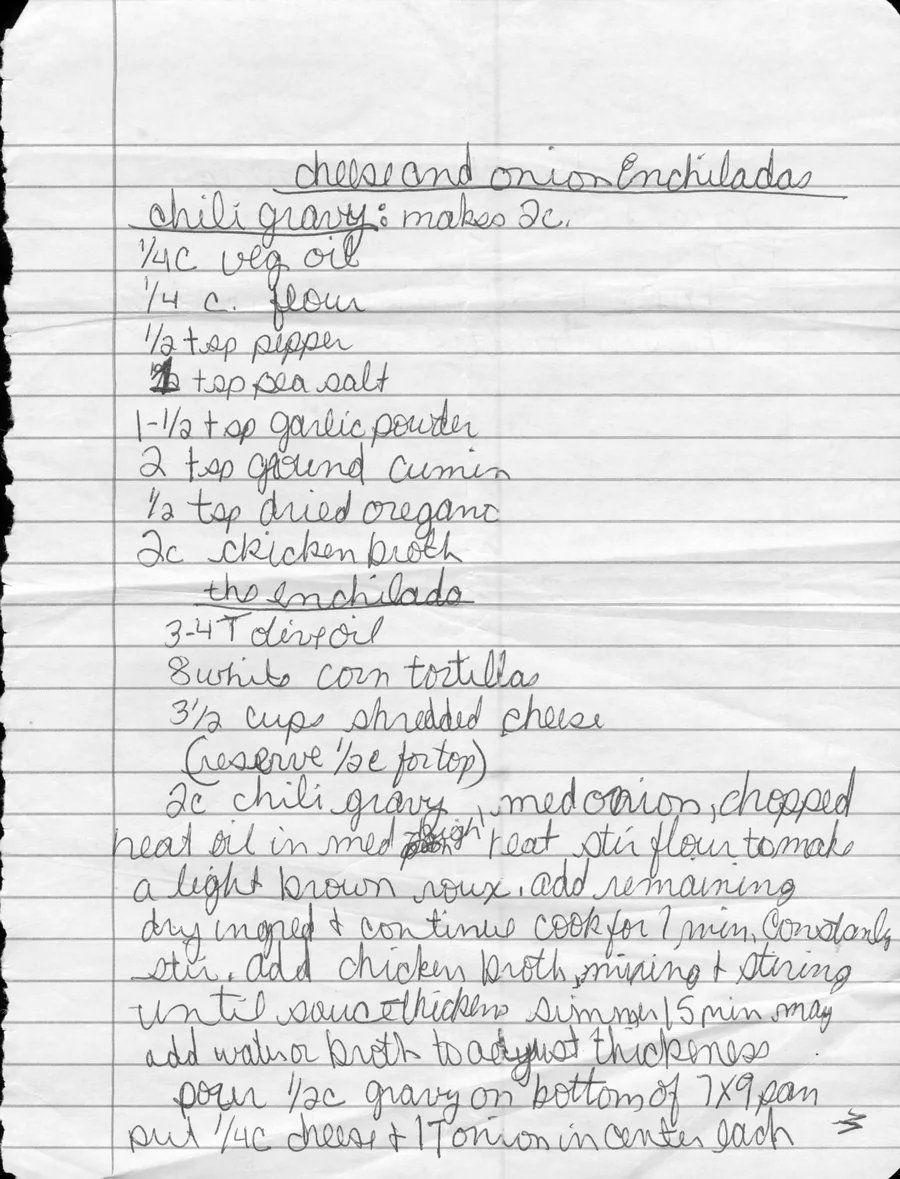 cheese and onion Enchiladas
chili gravy: makes 2c.
1/4c veg oil
1/4 c. flour
1/2 tsp pepper
tsp sea salt
1-1/2 tsp garlic powder
2 tsp ground cumin
1/2 tsp dried oregano
2c chicken broth
the enchilada
3-4 T olive oil
8 white corn tortillas
3 1/2 cups shredded cheese
(reserve 1/2 c for top)
2c chili gravy, med onion, chopped
heat oil in med high heat stir flour to make
a light brown roux. add remaining
dry ingred + continue cook for 1 min. Constanly
stir. add chicken broth, mixing + stiring
until sauce thickens simmer 15 min may
add water or broth to adjust thickeness
pour 1/2c gravy on bottom of 7x9 pan
put 1/4c cheese + 1T onion in center each